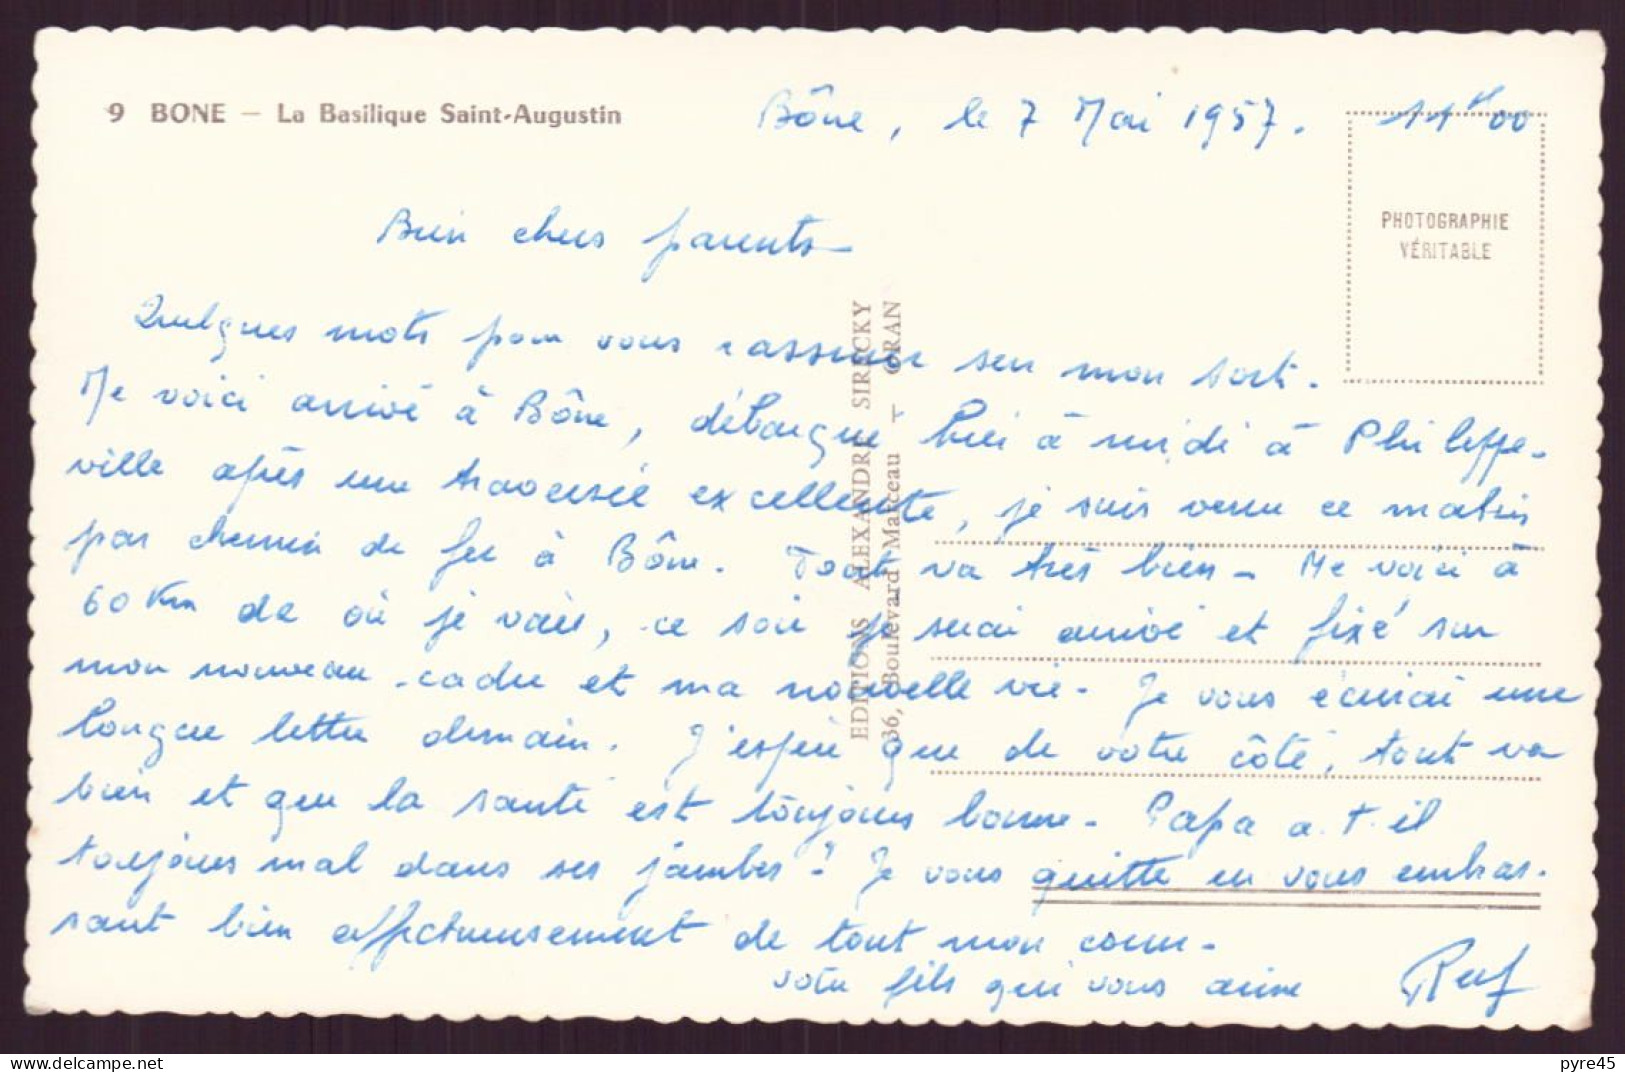 9 BONE — La Basilique Saint-Augustin
Bône, le 7 Mai 1957. 11H00
PHOTOGRAPHIE
VÉRITABLE
Bien chers parents
Quelques mots pour vous rassurer sur mon sort.
Me voici arrivé à Bône, débarqué hier à midi à Philippe-
ville après une traversée excellente, je suis venu ce matin
par chemin de fer à Bône. Tout va très bien - Me voici à
60 Km de où je vais, ce soir je serai arrivé et fixé sur
mon nouveau cadre et ma nouvelle vie. Je vous écrirai une
longue lettre demain. J'espère que de votre côté, tout va
bien et que la santé est toujours bonne. Papa a-t-il
toujours mal dans ses jambes? Je vous quitte en vous embras-
sant bien affectueusement de tout mon coeur.
votre fils qui vous aime
EDITIONS ALEXANDRE SIRECKY
36, Boulevard Marceau — ORAN
pyre45